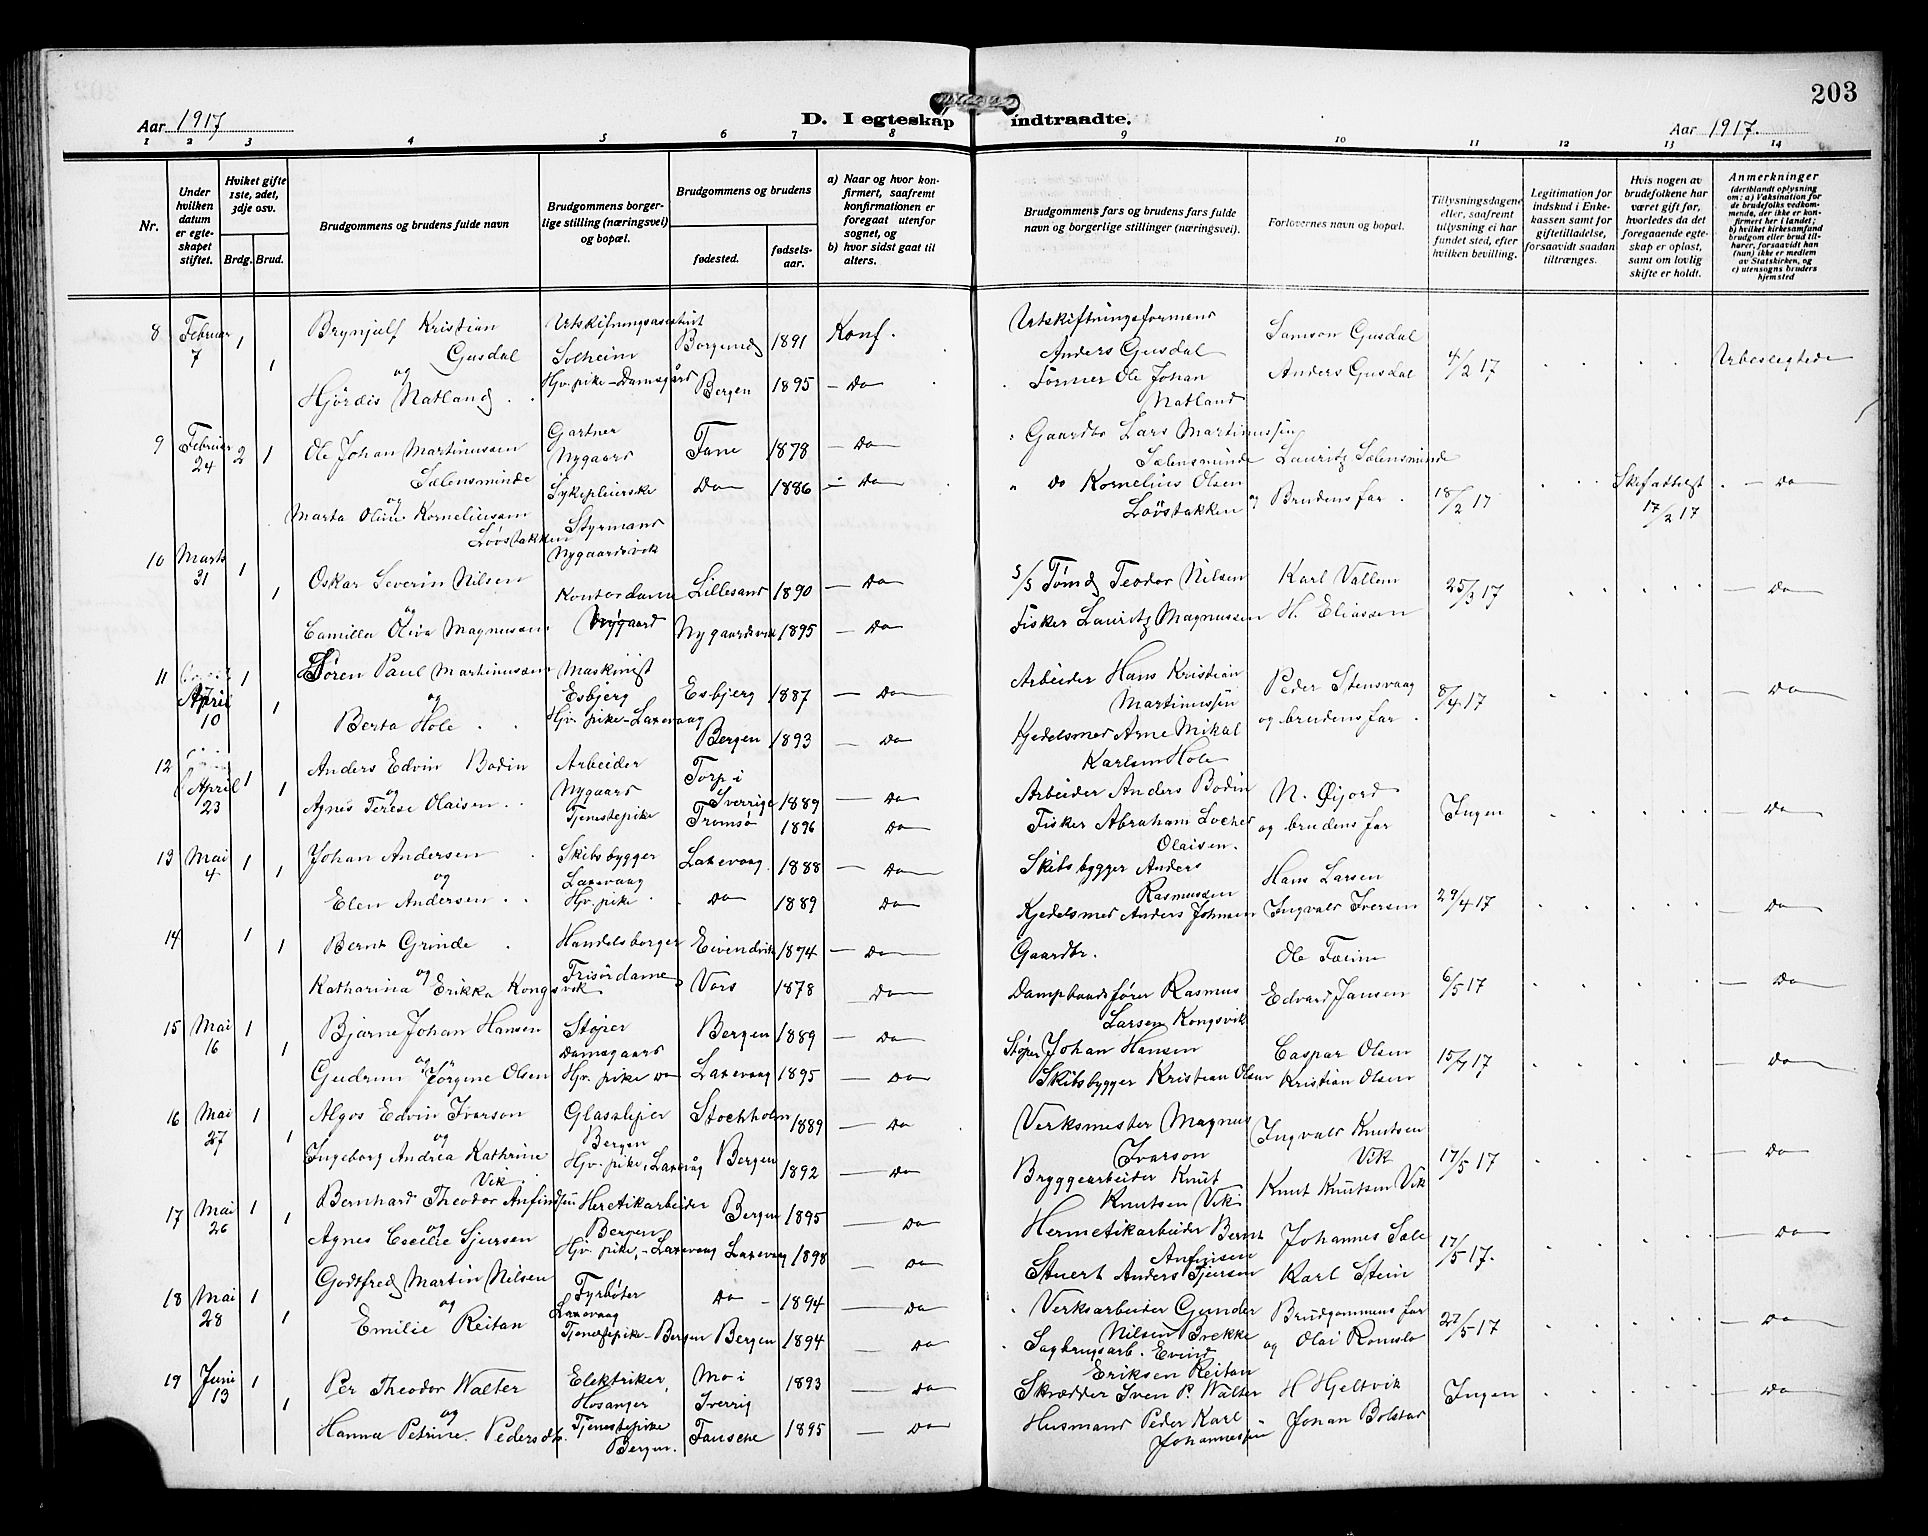 203
Aar 1917
D. I egteskap indtraadte.
Aar 1917.
1 2 3 4 5 6 7 8 9 10 11 12 13 14
Nr.
Under hvilken datum er egteskapet stiftet.
Hviket gifte 1ste, 2det, 3dje osv.
Brdg. Brud.
Brudgommens og brudens fulde navn
Brudgommens borgerlige stilling (næringsvei) og bopæl.
Brudgommens og brudens
fødested.
fødselsaar.
a) Naar og hvor konfirmert, saafremt konfirmationen er foregaat utenfor sognet, og
b) hvor sidst gaat til alters.
Brudgommens fars og brudens fars fulde navn og borgerlige stillinger (næringsvei).
Forlovernes navn og bopæl.
Tillysningsdagene eller, saafremt tillysning ei har fundet sted, efter hvilken bevilling.
Legitimation for indskud i Enkekassen samt for giftetilladelse, forsaavidt saadan tiltrænges.
Hvis nogen av brudefolkene har været gift før, hvorledes da det foregaaende egteskap er opløst, samt om lovlig skifte er holdt.
Anmerkninger
(deriblandt oplysning om: a) Vaksination for de brudefolks vedkommende, der ikke er konfirmert her i landet; b) hvilket kirkesamfund brudgom eller brud tilhører, forsaavidt han (hun) ikke er medlem av Statskirken, og c) utensogns bruders hjemsted
8 Februar 7 1 1
Brynjulf Kristian Gusdal
og
Hjördis Natland
Solheim
Hjv. pike - Damsgård
Bergen
1891 Konf.
1895 — Do
Utskiftningsformand
Anders Gusdal
Former Ole Johan Natland
Samson Gusdal
Anders Gusdal
4/2 17
Ubeslegtede
9 Februar 24 2 1
Ole Johan Martinussen Sælensminde
og
Marta Oline Korneliussen Løvstakken
Gartner
Nygaard
Sykepleierske
Fane 1878 — Do
Do 1886 — Do
Gaardbr. Lars Martinussen Sælensminde
Do Kornelius Olsen Løvstakken
Lauritz Sælensminde
og Brudens far.
18/2 17
Skifteattest
17/2 17
— Do
10 Marts 31 1 1
Oskar Severin Nilsen
og
Camilla Oliva Magnussen
Styrmand
Nygaardsvik
Kontordame
Nygaard
Lillesand 1890 — Do
Nygaardsvik 1895 — Do
Teodor Nilsen
Fisker Lauritz Magnussen
Karl Vallem
H. Eliassen
25/3 17
— Do
11 April 10 1 1
Søren Paul Martinussen
og
Berta Hole
Maskinist
Esbjerg
Hjv. pike - Laxevaag
Esbjerg 1887 — Do
Bergen 1893 — Do
Arbeider Hans Kristian Martinussen
Kjedelsmed Arne Mikal Karlsen Hole
Peder Stensvaag
og brudens far.
8/4 17
— Do
12 April 23 1 1
Anders Edvin Bodin
og
Agnes Terese Olaisen
Arbeider
Nygaard
Tjenestepike
Torp i Sverrige 1889 — Do
Tromsø 1896 Do
Arbeider Anders Bodin
Fisker Abraham Locher Olaisen.
N. Øijord
og brudens far
Ingen
— Do
13 Mai 4 1 1
Johan Andersen
og
Elen Andersen
Skibsbygger
Laxevaag
Hjv. pike
Laxevaag 1888 — Do
Do 1889 Do
Skibsbygger Anders Rasmussen
Kjedelsmed Anders Johnsen
Hans Larsen
Ingvald Iversen
29/4 17
— Do
14 1 1
Bernt Grinde
og
Katharina Erikka Kongsvik
Handelsborger
Frisørdame
Eivendvik 1874 — Do
Vors 1878 Do
Gaardbr.
Dampbaadsfører Rasmus Larsen Kongsvik
Ole
Edvard Jansen
6/5 17
— Do
15 Mai 16 1 1
Bjarne Johan Hansen
og
Gudrun Jörgine Olsen
Støper
Damsgaard
Hjv. pike Do
Bergen 1889 — Do
Laxevaag 1895 — Do
Støper Johan Hansen
Skibsbygger Kristian Olsen
Caspar Olsen
Kristian Olsen
— Do
16 Mai 27 1 1
Algos Edvin Ivarson
og
Ingeborg Andrea Kathrine Vik
Glassliper
Bergen
Hjv. pike, Laxevåg
Stockholm 1889 — Do
Bergen 1892 — Do
Verksmester Magnus Ivarson
Bryggearbeider Knut Knutsen Vik
Ingvald Knutsen Vik
Knut Knutsen Vik
17/5 17
— Do
17 Mai 26 1 1
Bernhard Theodor Anfindsen
og
Agnes Cecilie Sjursen
Hermetikarbeider
Bergen
Hjv. pike, - Laxevaag
Bergen 1895 — Do
Laxevaag 1898 — Do
Hermetikarbeider Bernt Anfinsen
Stuert Anders Sjursen
Johannes Sale
Karl Stein
17/5 17.
— Do
18 Mai 28 1 1
Godtfred Martin Nilsen
og
Emilie Reitan
Fyrbøter
Laxevaag
Tjenestepike - Bergen
Do 1894 — Do
Bergen 1894 — Do
Verksarbeider Gunder Nilsen Brekke
Sagbrugsarb. Evind Eriksen Reitan
Brudgommens far
og Olai Romslo
27/5 17
— Do
19 Juni 13 1 1
Per Theodor Walter
og
Hanna Petrine Pedersdtr.
Elektriker
Hosanger
Tjenestepike
Bergen.
Mo i Sverrig 1893 — Do
Fauske 1895 — Do
Skrædder Sven P. Walter
Husmand Peder Karl Johannessen
H Hjeltvik
Johan Bolstad
Ingen
— Do